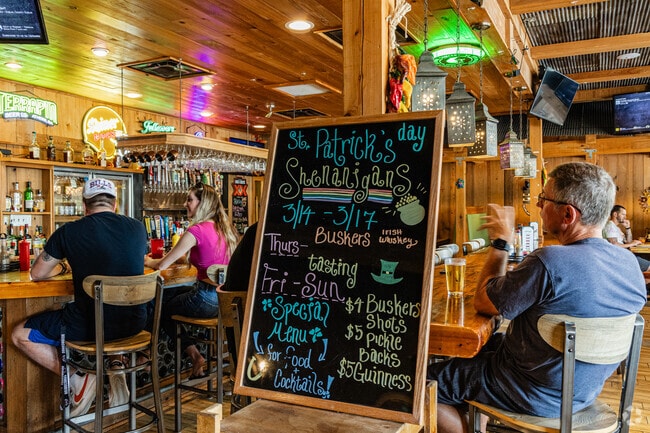 St. Patrick's day
Shenanigans
3/14 - 3/17
Buskers IRISH Whiskey
Thurs- tasting
Fri-Sun
Special
Menu
for food
Cocktails
$4 Buskers
Shots
$5 Pickle
Backs
$5 Guinness
TERRAPIN
BEER CO.